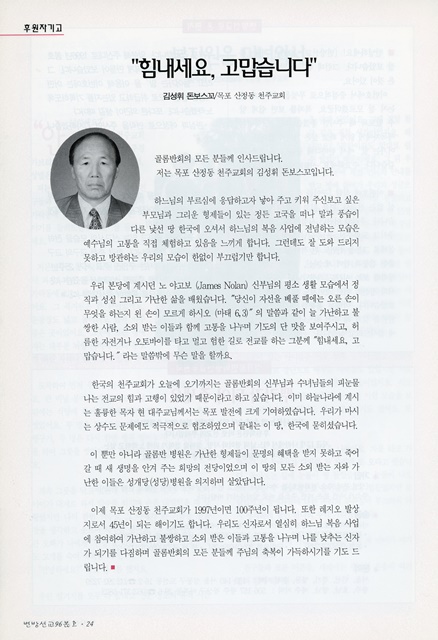 후원자기고
"힘내세요, 고맙습니다"
김성휘 돈보스꼬/목포 산정동 천주교회
골롬반회의 모든 분들께 인사드립니다.
저는 목포 산정동 천주교회의 김성휘 돈보스꼬입니다.
하느님의 부르심에 응답하고자 낳아 주고 키워 주신보고 싶은
부모님과 그리운 형제들이 있는 정든 고국을 떠나 말과 풍습이
다른 낯선 땅 한국에 오셔서 하느님의 복음 사업에 전념하는 모습은
예수님의 고통을 직접 체험하고 있음을 느끼게 합니다. 그런데도 잘 도와 드리지
못하고 방관하는 우리의 모습이 한없이 부끄럽기만 합니다.
우리 본당에 계시던 노 야고보 (James Nolan) 신부님의 평소 생활 모습에서 정
직과 성실 그리고 가난한 삶을 배웠습니다. "당신이 자선을 베풀 때에는 오른 손이
무엇을 하는지 왼 손이 모르게 하시오 (마태 6,3)" 의 말씀과 같이 늘 가난하고 불
쌍한 사람, 소외 받는 이들과 함께 고통을 나누며 기도의 단 맛을 보여주시고, 허
름한 자전거나 오토바이를 타고 멀고 험한 길로 전교를 하는 그분께 "힘내세요, 고
맙습니다." 라는 말씀밖에 무슨 말을 할까요.
한국의 천주교회가 오늘에 오기까지는 골롬반회의 신부님과 수녀님들의 피눈물
나는 전교의 힘과 고행이 있었기 때문이라고 하고 싶습니다. 이미 하늘나라에 계시
는 훌륭한 목자 현 대주교님께서는 목포 발전에 크게 기여하였습니다. 우리가 마시
는 상수도 문제에도 적극적으로 협조하였으며 끝내는 이 땅, 한국에 묻히셨습니다.
이 뿐만 아니라 골롬반 병원은 가난한 형제들이 문명의 혜택을 받지 못하고 죽어
갈 때 새 생명을 안겨 주는 희망의 전당이었으며 이 땅의 모든 소외 받는 자와 가
난한 이들은 성개당(성당)병원을 의지하며 살았답니다.
이제 목포 산정동 천주교회가 1997년이면 100주년이 됩니다. 또한 레지오 발상
지로서 45년이 되는 해이기도 합니다. 우리도 신자로서 열심히 하느님 복음 사업
에 참여하여 가난하고 불쌍하고 소외 받은 이들과 고통을 나누며 나를 낮추는 신자
가 되기를 다짐하며 골롬반회의 모든 분들께 주님의 축복이 가득하시기를 기도 드
립니다. ■
변방선교96봄호 · 24